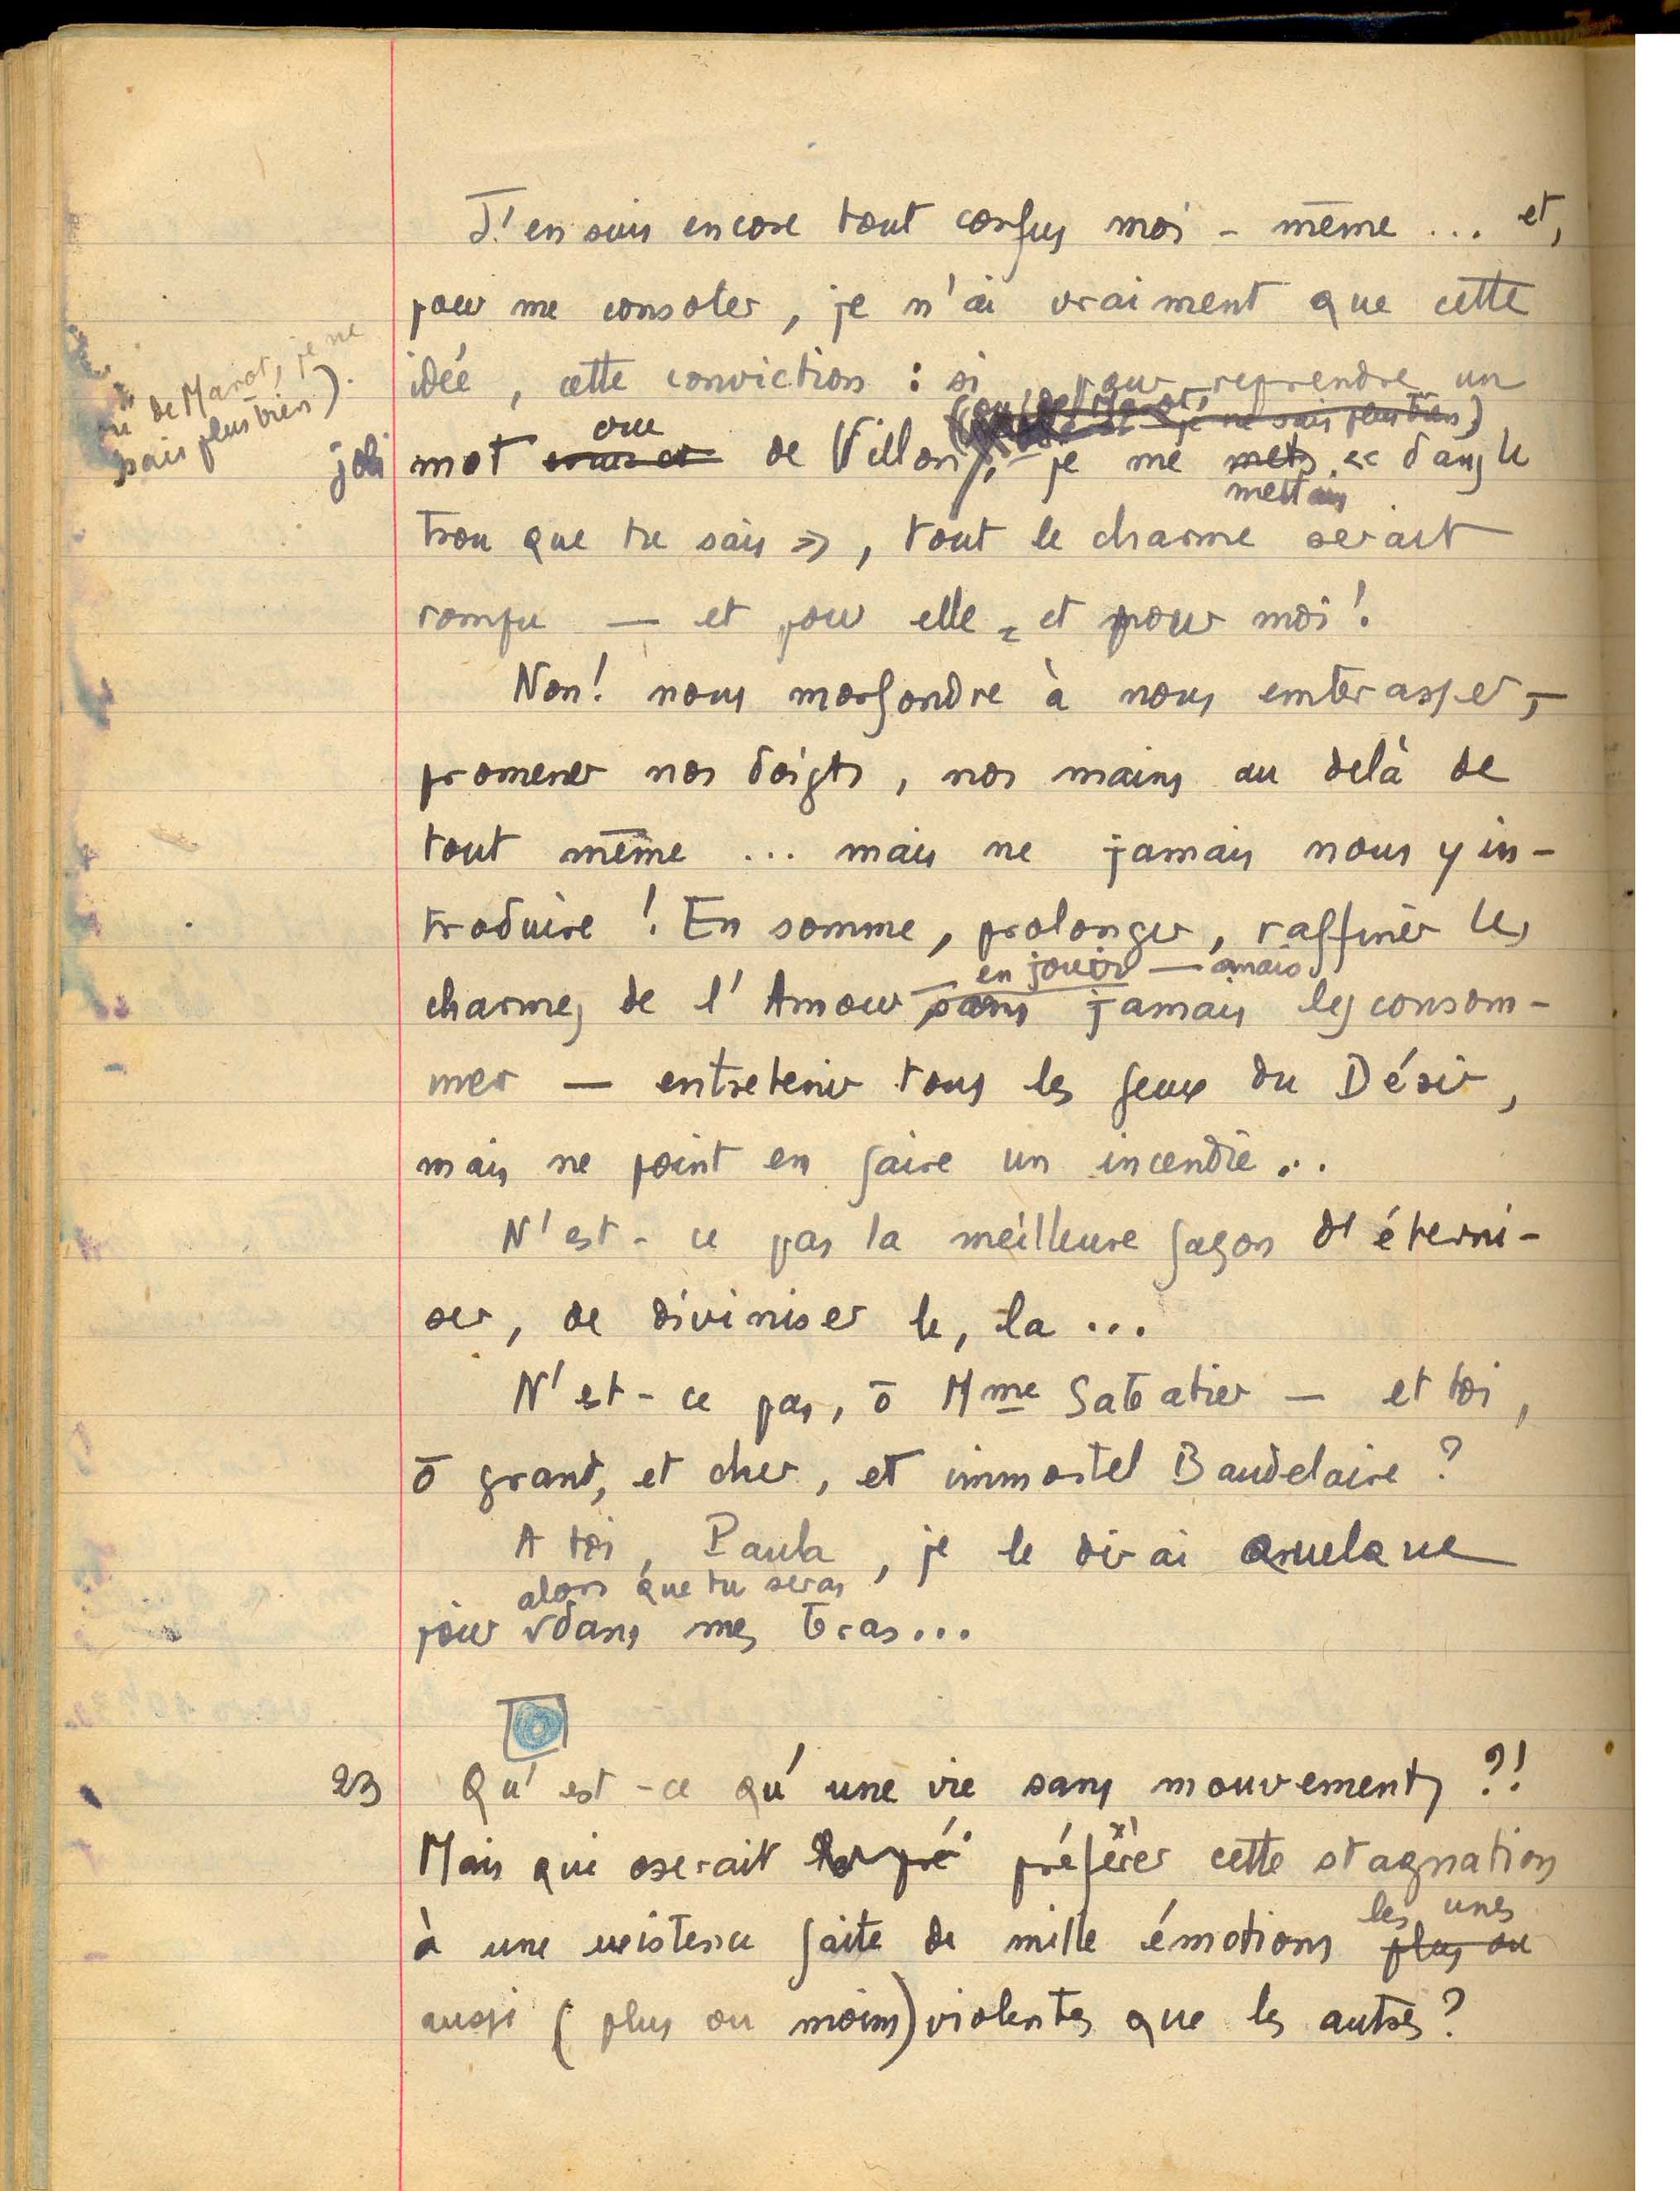 J'en suis encore tout confus moi-même... et,
pour me consoler, je n'ai vraiment que cette
idée, cette conviction : si, pour reprendre un
(ou de Marot, je ne sais plus bien)
ou de Marot, je ne
sais plus bien).
cru
joli mot de Villon, je me mets « dans le
mettais
trou que tu sais », tout le charme serait
rompu — et pour elle, et pour moi !
Non ! nous morfondre à nous embrasser,
promener nos doigts, nos mains au delà de
tout même ... mais ne jamais nous y in-
troduire ! En somme, prolonger, raffiner les
— en jouir — mais
charmes de l'Amour sans jamais les consom-
mer — entretenir tous les feux du Désir,
mais ne point en faire un incendie...
N'est-ce pas la meilleure façon d'éterni-
ser, de diviniser le, la ...
N'est-ce pas, ô Mme Sabatier — et toi,
ô grand, et cher, et immortel Baudelaire ?
A toi, Paula, je le dirai quelque
alors que tu seras
jour dans mes bras...
23 Qu'est-ce qu'une vie sans mouvements ?!
Mais qui oserait pré préférer cette stagnation
les unes
à une existence faite de mille émotions plus ou
aussi (plus ou moins) violentes que les autres ?